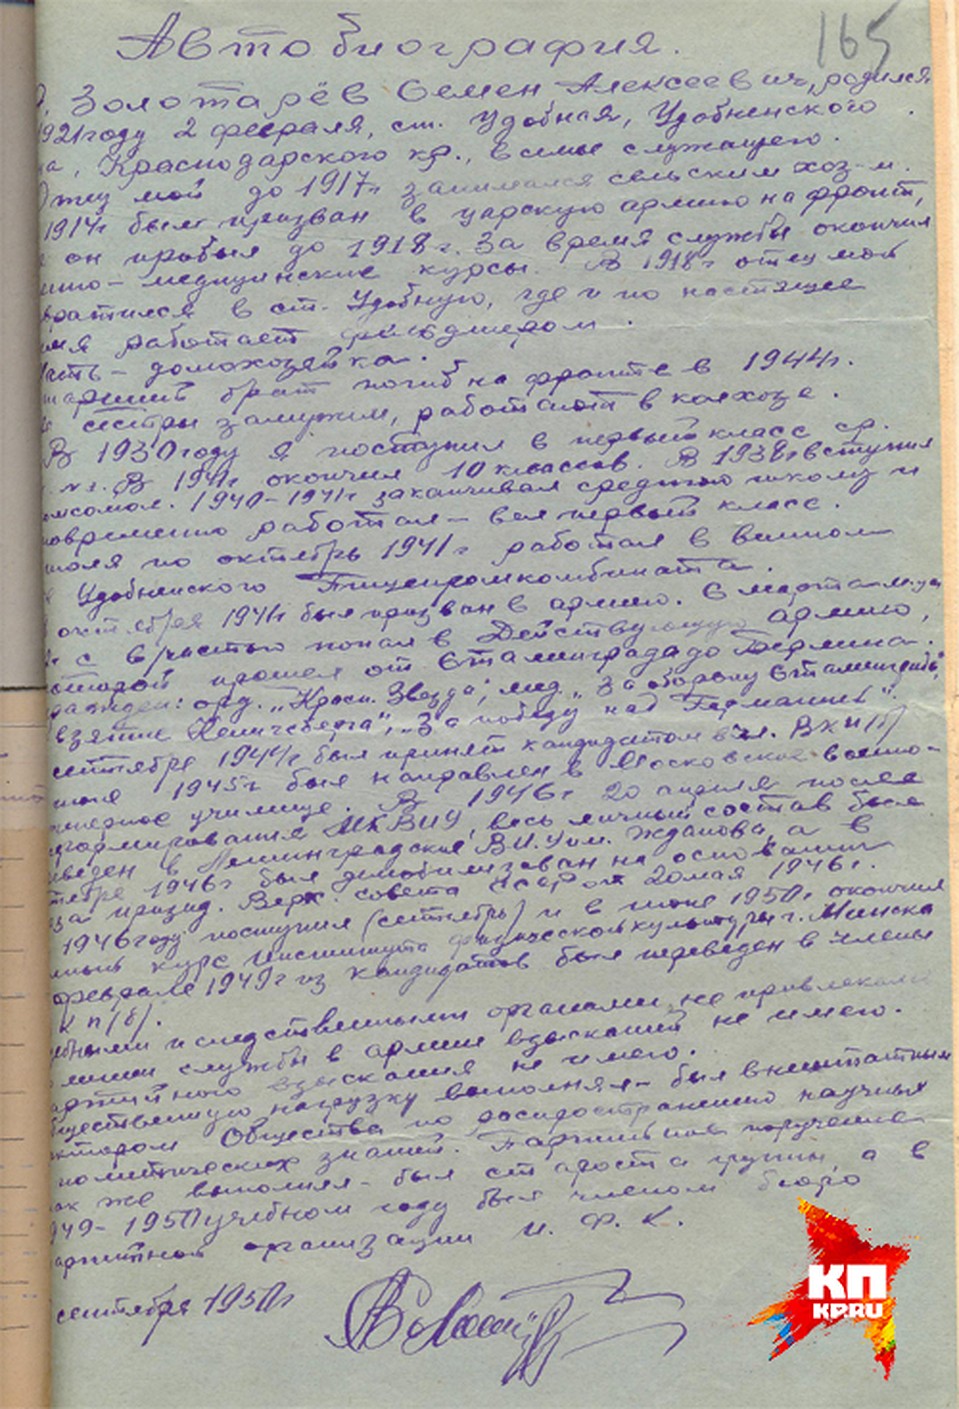 165
Автобиография.
Золотарёв Семен Алексеевич, родился
1921 году 2 февраля, ст. Удобная, Удобненского
на, Краснодарского кр., в семье служащего.
Отец мой до 1917г занимался сельским хоз-м.
1914г был призван в царскую армию на фронт,
е он пробыл до 1918г. За время службы окончил
нно-медицинские курсы. В 1918г отец мой
вратился в ст. Удобную, где и по настоящее
мя работает фельдшером.
Мать – домохозяйка.
тарший брат погиб на фронте в 1944г.
е сестры замужем, работают в колхозе.
В 1930 году я поступил в первый класс ср.
В 1941г окончил 10 классов. В 1938г вступил
омсомол. 1940–1941г заканчивал среднюю школу и
новременно работал – вел первый класс.
июля по октябрь 1941г работал в винном
Удобненского Пищепромкомбината.
октября 1941г был призван в армию. С марта м-ца
с частью попал в Действующую армию,
оторой прошел от Сталинграда до Берлина.
гражден: орд. „Красн. Звезда", мед. „За оборону Сталинграда",
взятие Кенигсберга", „За победу над Германией".
сентября 1944г был принят кандидатом в чл. ВКП(б)
юня 1945г был направлен в Московское военно-
женерное училище. В 1946г 20 апреля после
сформирования МКВИУ, весь личный состав был
еведен в Ленинградское В.И.У им. Жданова, а в
тябре 1946г был демобилизован на основании
аза презид. Верх. совета СССР от 20 мая 1946г.
1946 году поступил (сентябрь) и в июне 1950г. окончил
лный курс Института физической культуры г. Минска
феврале 1949г из кандидатов был переведен в члены
КП(б).
ебными и следственными органами не привлекался
о линии службы в армии взысканий не имею.
артийного взыскания не имею.
бщественную нагрузку выполнял – был внештатным
ектором Общества по распространению научных
политических знаний. Партийные поручение
ак же выполнял – был староста группы, а в
949–1950 учебном году был членом бюро
артийной организации И. Ф. К.
сентября 1950г
КП
KP.RU